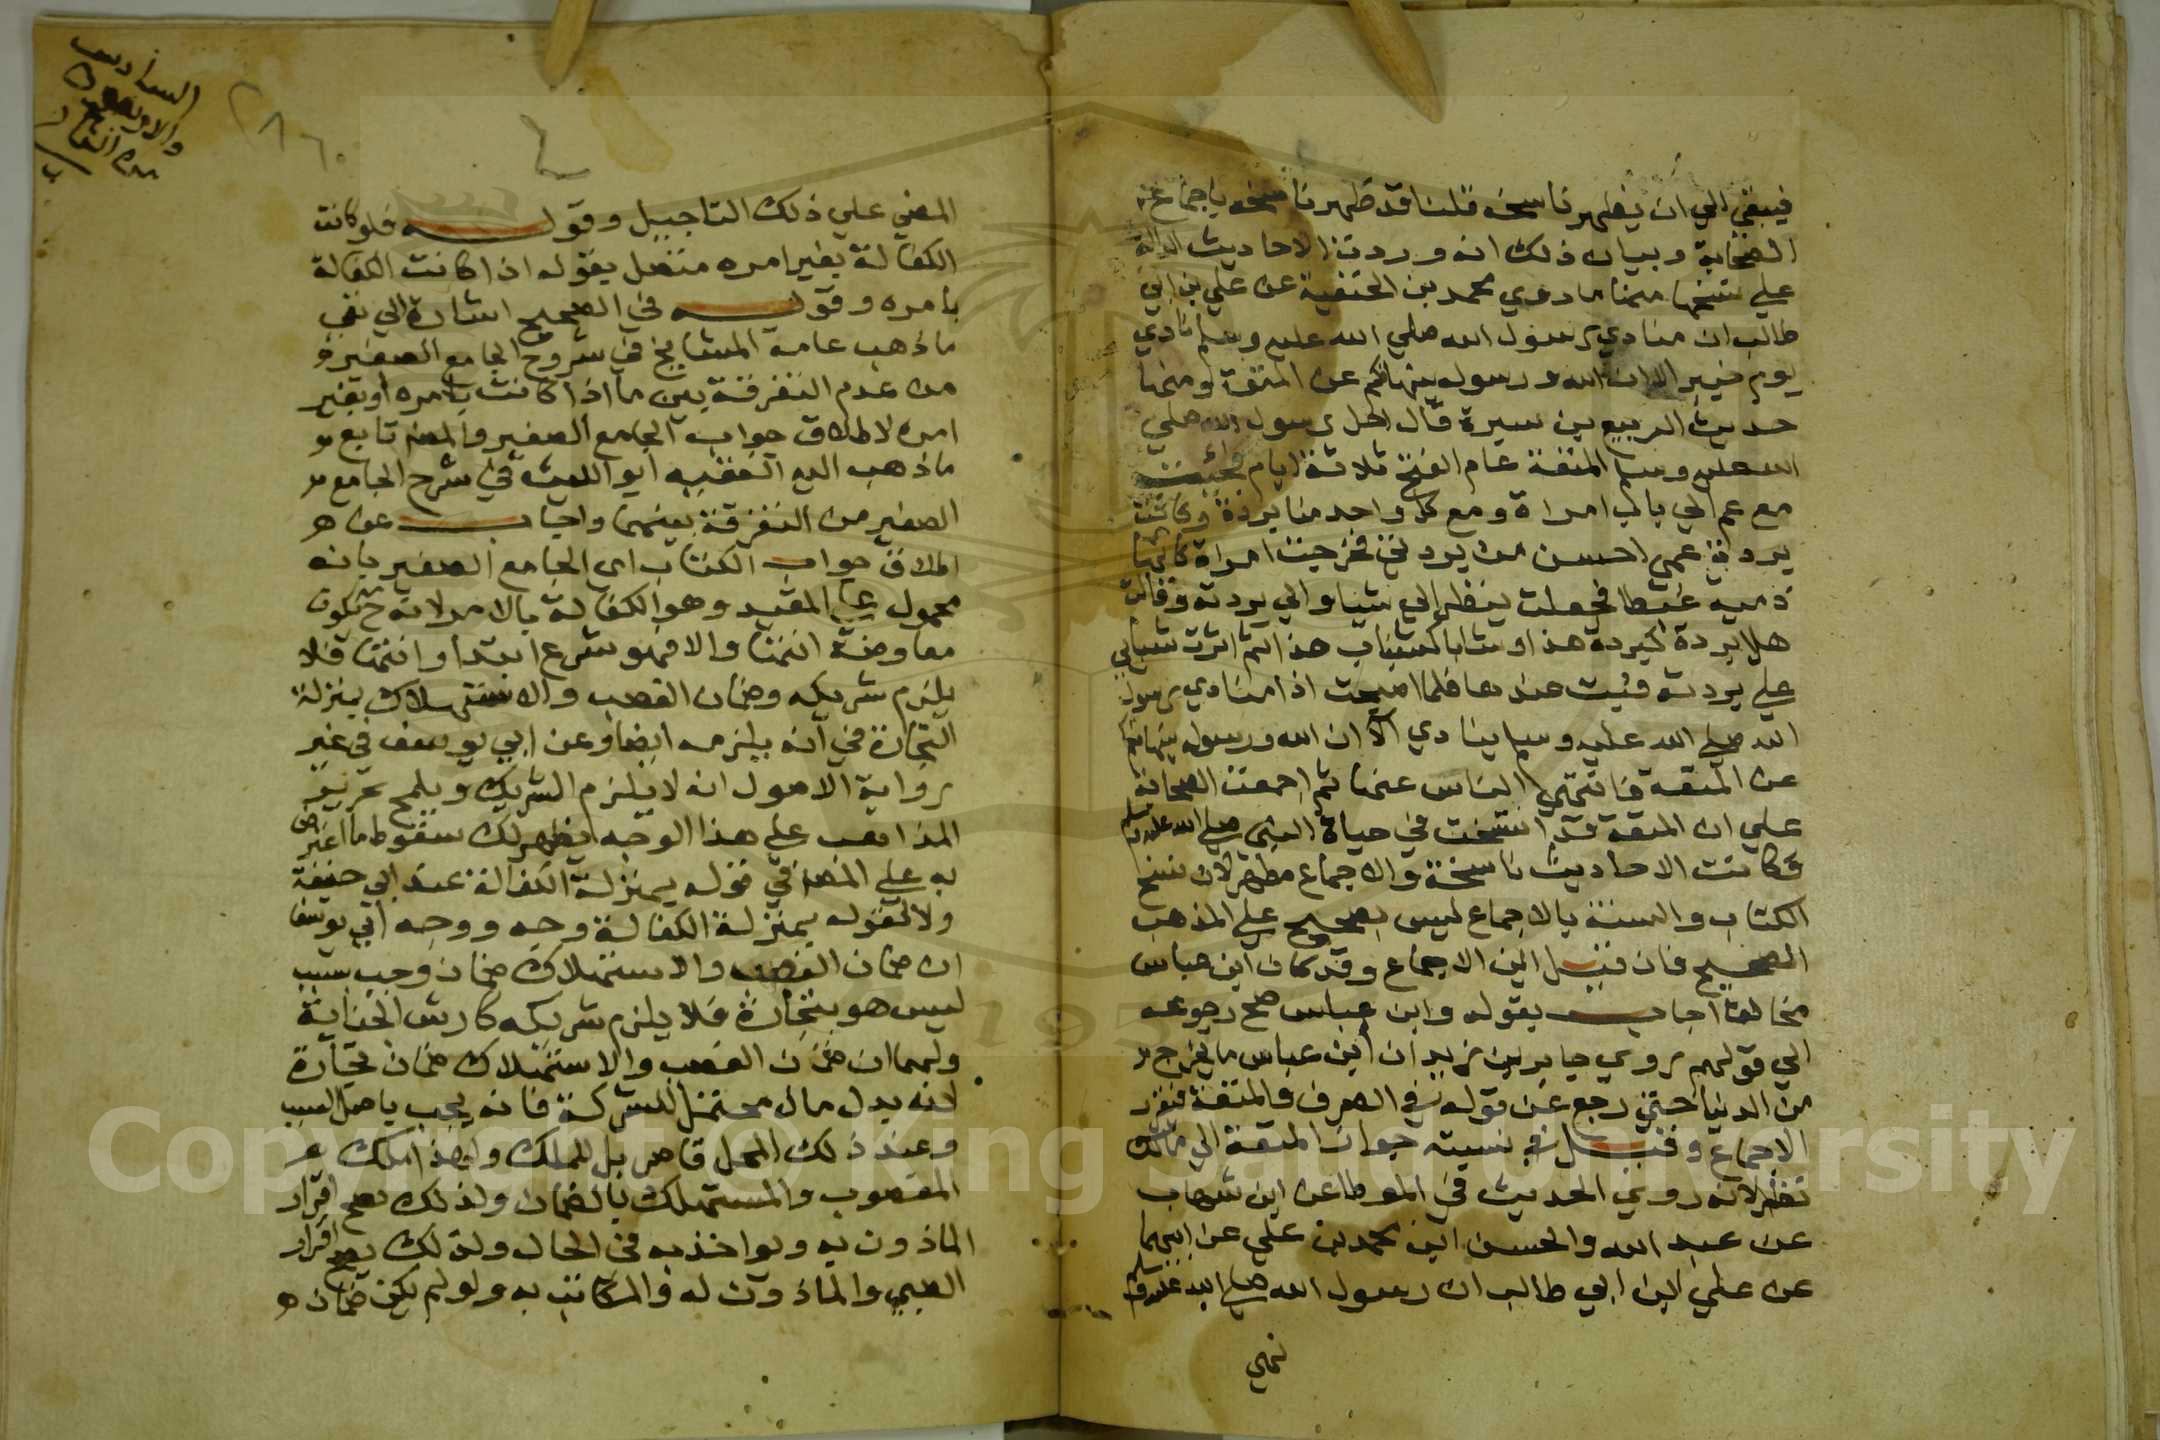 فيبقي الي ان يظهر ناسخه قلنا قد ظهر ناسخه باجماع
الصحابة وبيان ذلك انه وردت الاحاديث الدالة
علي نسخها منها ما روي محمد بن الحنفية عن علي بن ابي
طالب ان منادي رسول الله صلي الله عليه وسلم نادي
يوم خيبر الا ان الله ورسوله ينهاكم عن المتعة ومنها
حديث الربيع بن سبرة قال احل رسول الله صلي
الله عليه وسلم المتعة عام الفتح ثلاثة ايام فجئت
مع عم لي باب امراة ومع كل واحد منا بردة وكانت
بردة عمي احسن من بردتي فخرجت امراة كانها
دمية عيطا فجعلت ينظر الي شبابي والي بردته وقالت
هلا بردة كبردة هذا او شباب كشباب هذا ثم اثرت شبابي
علي بردته فبت عندها فلما اصبحت اذا منادي رسول
الله صلي الله عليه وسلم ينادي الا ان الله ورسوله ينهاكم
عن المتعة فانتهي الناس عنها ثم اجمعت الصحابة
علي ان المتعة قد انتسخت في حياة النبي صلي الله عليه وسلم
فكانت الاحاديث ناسخة والاجماع مظهر لان نسخ
الكتاب والسنة بالاجماع ليس بصحيح علي المذهب
الصحيح فان قيل اين الاجماع وقد كان ابن عباس
مخالفا اجاب بقوله وابن عباس صح رجوعه
الي قولهم روي جابر بن زيد ان ابن عباس ما خرج
من الدنيا حتي رجع عن قوله في الصرف والمتعة فتقرر
الاجماع وقيل في نسبته جواز المتعة الي مالك
نظر لانه روي الحديث في الموطا عن ابن شهاب
عن عبد الله والحسن ابن محمد بن علي عن ابيهما
عن علي ابن ابي طالب ان رسول الله صلي الله عليه وسلم
نهي
السادس
والاربعون
من
المضي علي ذلك التاجيل وقوله فلو كانت
الكفالة بغير امره متصل بقوله اذا كانت الكفالة
بامره وقوله في الصحيح اشارة الي نفي
ما ذهب عامة المشايخ في شروح الجامع الصغير
من عدم التفرقة بين ما اذا كانت بامره او بغير
امره لاطلاق جواب الجامع الصغير والمصنف تابع
ما ذهب اليه الفقيه ابو الليث في شرح الجامع
الصغير من التفرقة بينهما واجاب عن
اطلاق جواب الكتاب اي الجامع الصغير بانه
محمول علي المقيد وهو الكفالة بالامر لانه ح تكون
معاوضة انتها والا فهو تبرع ابتدا وانتها فلا
يلزم شريكه وضمان الغصب والاستهلاك بمنزلة
التجارة في انه يلزمه ايضا وعن ابي يوسف في غير
رواية الاصول انه لا يلزم الشريك وبلمح تحرير
المذاهب علي هذا الوجه يظهر لك سقوط ما اعترض
به علي المصنف في قوله بمنزلة الكفالة عند ابي حنيفة
ولا لقوله بمنزلة الكفالة وجه ووجه ابي يوسف
ان ضمان الغصب والاستهلاك ضمان وجب بسبب
ليس هو بتجارة فلا يلزم شريكه كارش الجناية
ولهما ان ضمان الغصب والاستهلاك ضمان تجارة
لانه بدل مال محتمل للشركة فانه يجب باصل السبب
وعند ذلك المحل قابل للملك ولهذا املك
المغصوب والمستهلك بالضمان ولذلك صح اقرار
الماذون به ويواخذ به في الحال ولذلك يصح اقرار
الصبي والماذون له والمكاتب به ولو لم يكن ضمان
Copyright © King Saud University